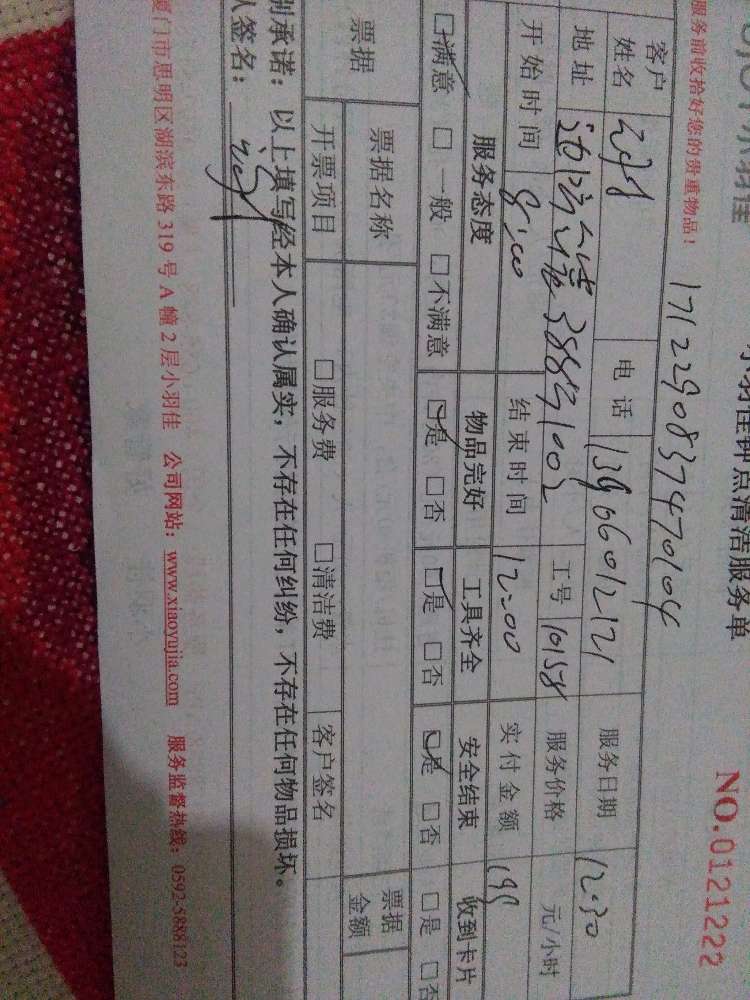 小羽佳钟点清洁服务单
NO.0121222
服务前收拾好您的贵重物品！
17122908374470104
客户姓名 电话 139606012121 服务日期 12.30
地址 388号1002 工号 10158 服务价格 元/小时
开始时间 8:00 结束时间 12:00 实付金额 198
服务态度 物品完好 工具齐全 安全结束 收到卡片
☑满意 □一般 □不满意 ☑是 □否 ☑是 □否 ☑是 □否 □是 □否
票据 票据名称 票据金额
开票项目 □服务费 □清洁费 客户签名
别承诺：以上填写经本人确认属实，不存在任何纠纷，不存在任何物品损坏。
人签名：
厦门市思明区湖滨东路319号A幢2层小羽佳 公司网站：www.xiaoyujia.com 服务监督热线：0592-5888123